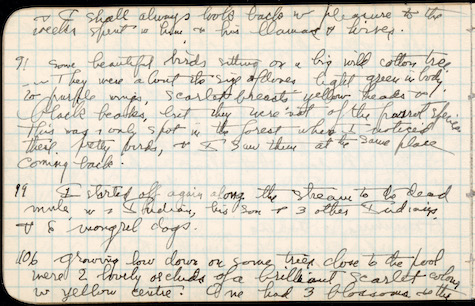 & I shall always look back w pleasure to the
weeks spent w him & his llamas & horses.
91 some beautiful birds sitting on a big wild cotton tree
They were about the size of doves light green in body,
purple wings, scarlet breasts yellow heads and
black beaks, but they were not of the parrot species
This was only spot in the forest where I noticed
these pretty birds, & I saw them at the same place
coming back.
99 I started off again along the stream to the dead
mule, w 1 Indian, his son & 3 other Indians
& 8 mongrel dogs.
106 growing low down on some trees close to the pool
were 2 lovely orchids of a brilliant scarlet colour
w yellow centre. One had 3 blossoms in the